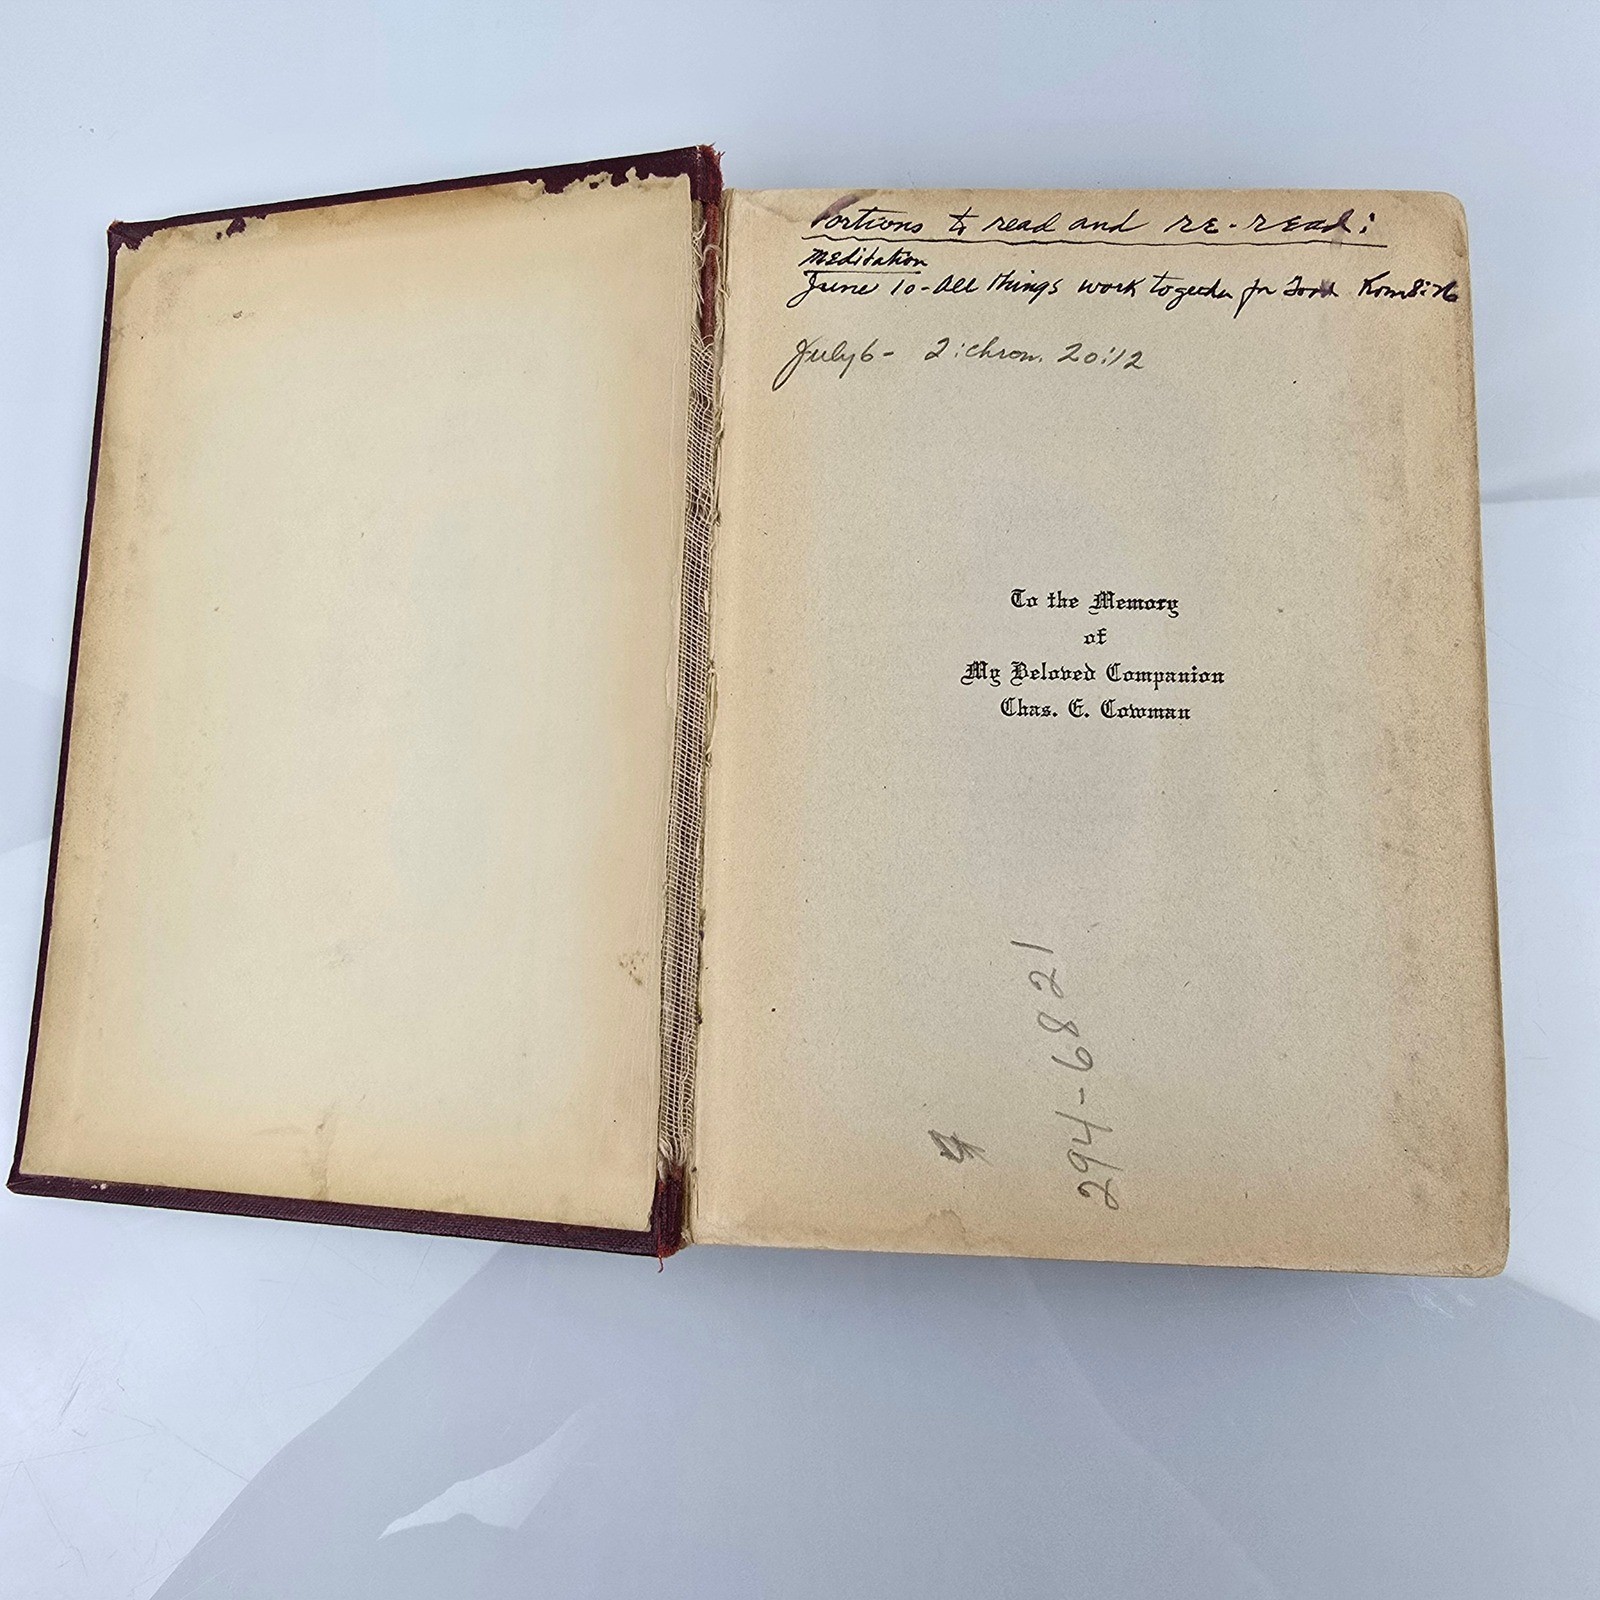 Portions to read and re-read:
Meditation
June 10 - All things work together for Good Rom 8:28
July 6 - 2: chron. 20:12
To the Memory
of
My Beloved Companion
Chas. E. Cowman
294-6821